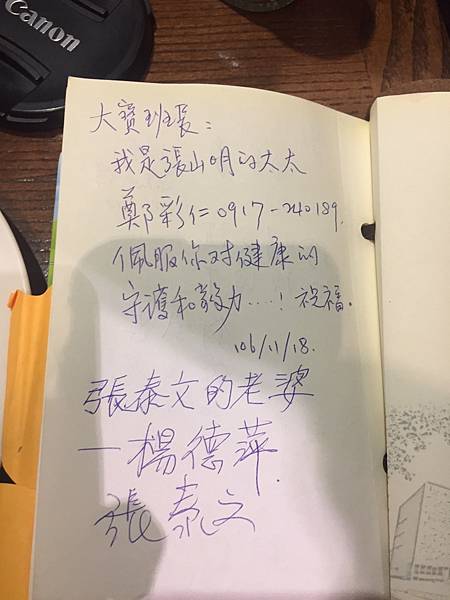 Canon
大寶班長：
我是張山明的太太
鄭彩仁0917-240189.
佩服你对健康的
守護和毅力....！祝福。
106/11/18.
張泰文的老婆
—楊德萍.
張泰文